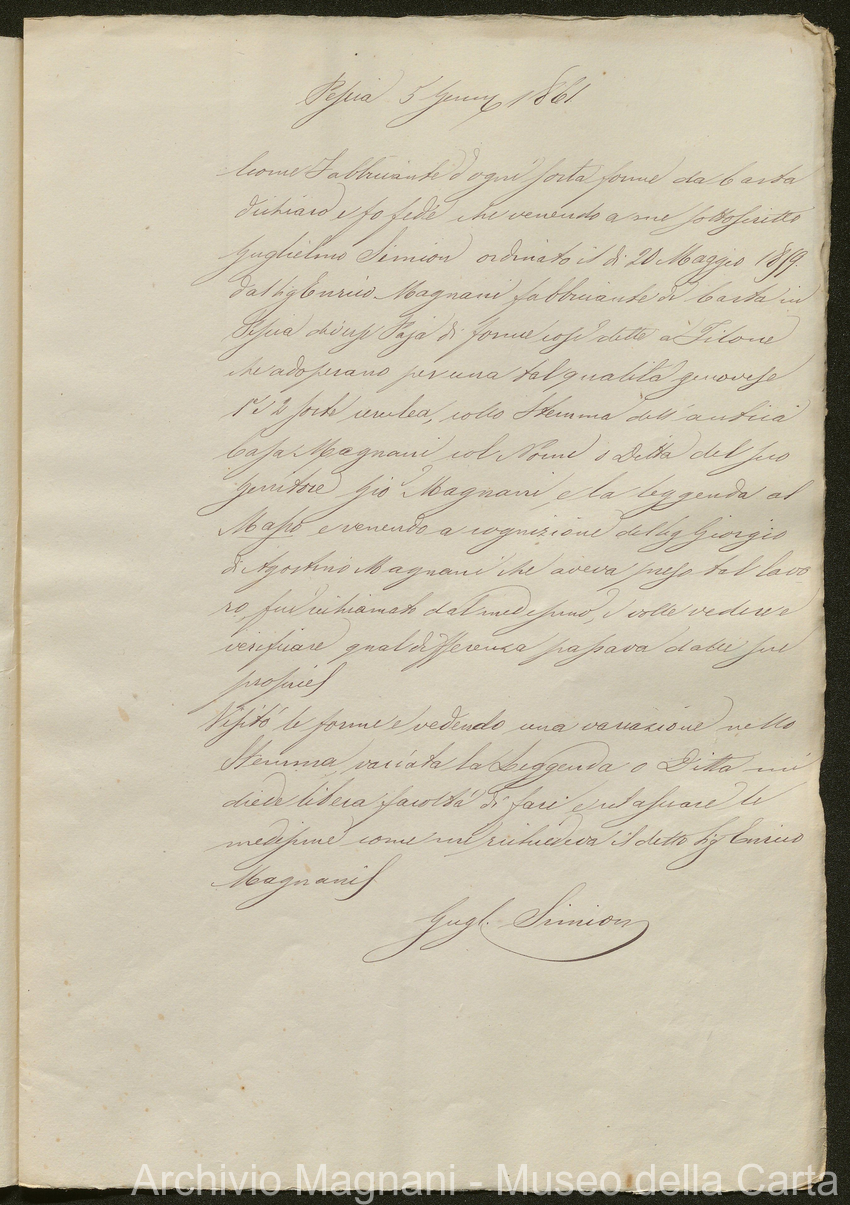 Pescia 5 Genn 1861
Come Fabbricante d'ogni sorta forme da Carta
dichiaro e fo fede che venendo a me sottoscritto
Guglielmo Simion ordinato il dì 20 Maggio 1859.
dal Sig Enrico Magnani fabbricante di Carta in
Pescia diversi Paja di forme così dette a Filone
che adoperano per una tal qualità genovese
1ª e 2 sorte cerulea, collo Stemma dell'antica
Casa Magnani col Nome o Ditta del suo
Genitore Gio Magnani, e la leggenda al
Masso, e venendo a cognizione del Sig Giorgio
di Agostino Magnani che aveva preso tal lavo
ro, fui richiamato dal medesimo, e volle vedere e
verificare qual differenza passava dalle sue
proprie
Visitò le forme e vedendo una variazione nello
Stemma, variata la Leggenda o Ditta mi
diede libera facoltà di fare e rilasciare le
medesime come mi richiedeva il detto Sig Enrico
Magnani
Gugl. Simion
Archivio Magnani - Museo della Carta